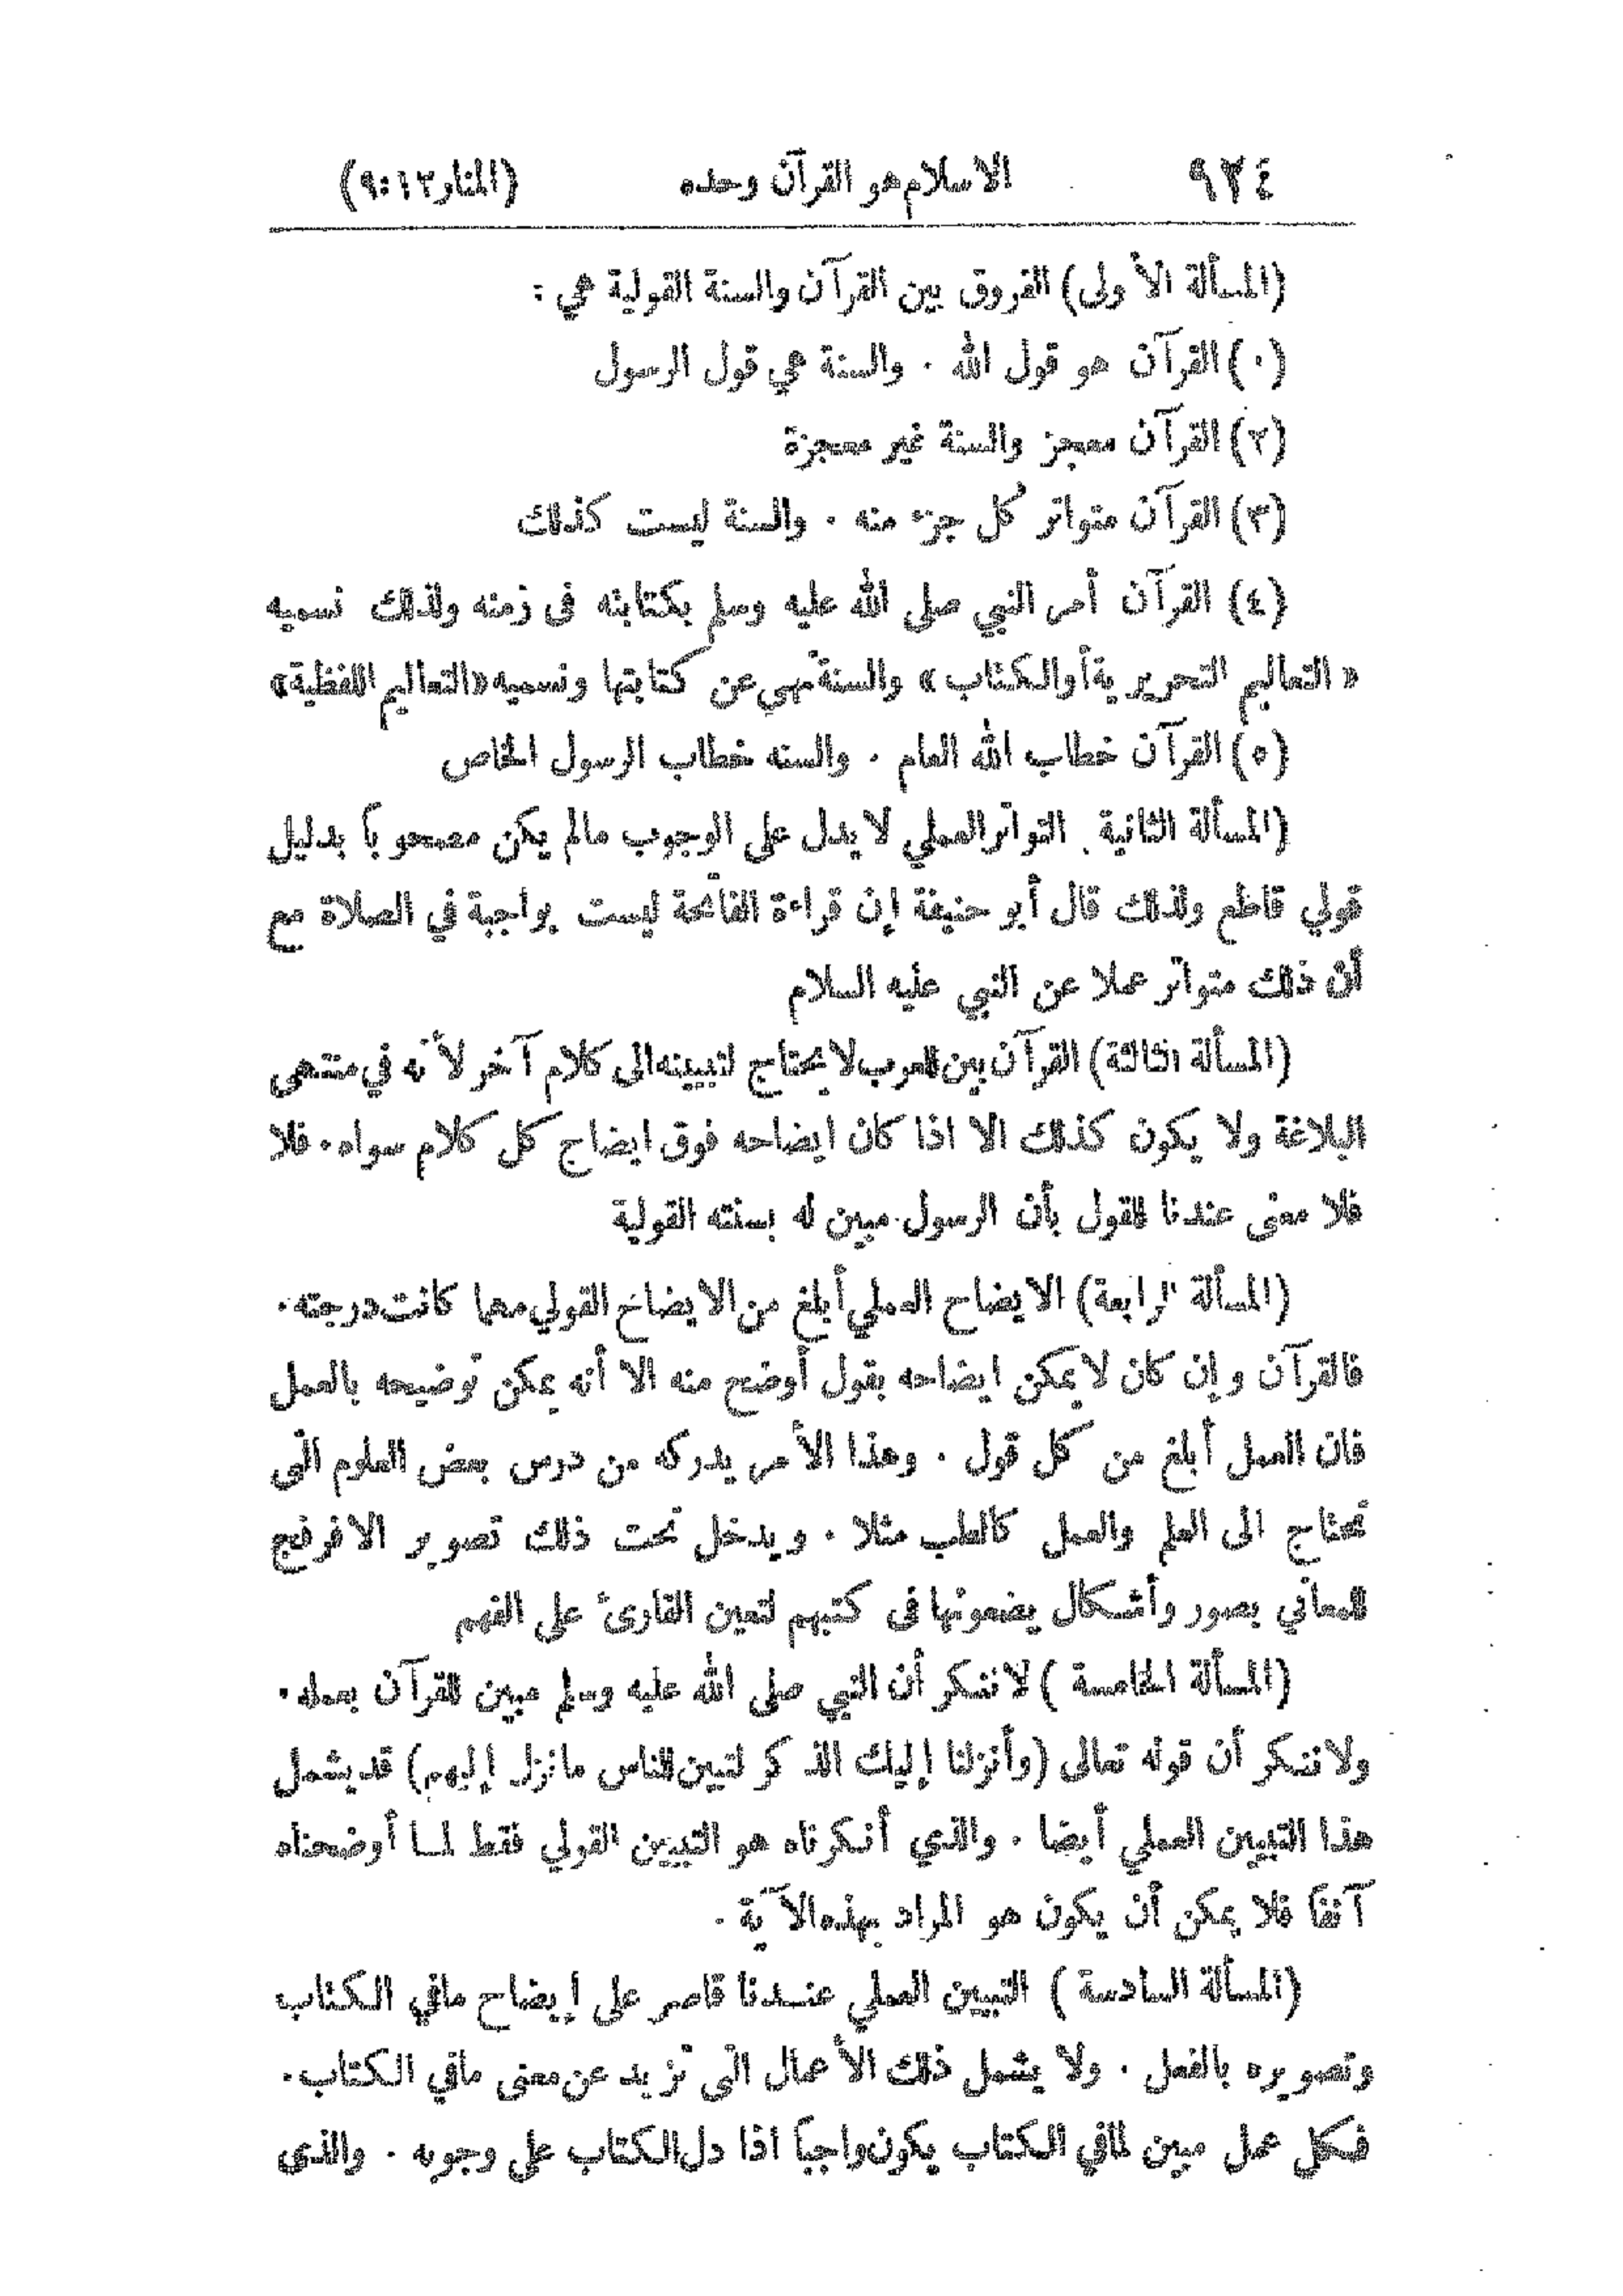 ٩٢٤ الاسلام هو القرآن وحده (المنار ١٢:٩)
(المسألة الأولى) الفروق بين القرآن والسنة القولية هي :
(٠) القرآن هو قول الله . والسنة هي قول الرسول
(٢) القرآن معجز والسنة غير معجزة
(٣) القرآن متواتر كل جزء منه . والسنة ليست كذلك
(٤) القرآن أمر النبي صلى الله عليه وسلم بكتابته فى زمنه ولذلك نسميه
« التعاليم التحريرية أو الكتاب » والسنة نهي عن كتابتها ونسميه « التعاليم اللفظية »
(٥) القرآن خطاب الله العام . والسنه خطاب الرسول الخاص
(المسألة الثانية . التواتر العملي لا يدل على الوجوب مالم يكن مصحوباً بدليل
قولي قاطع ولذلك قال أبو حنيفة إن قراءة الفاتحة ليست بواجبة في الصلاة مع
أن ذلك متواتر عملا عن النبي عليه السلام
(المسألة الثالثة) القرآن بين للعرب لا يحتاج لتبيينه الى كلام آخر لأنه في منتهى
البلاغة ولا يكون كذلك الا اذا كان ايضاحه فوق ايضاح كل كلام سواه . فلا
فلا معنى عندنا للقول بأن الرسول مبين له بسنته القولية
(المسألة الرابعة) الايضاح العملي أبلغ من الايضاح القولي مهما كانت درجته .
فالقرآن وإن كان لا يمكن ايضاحه بقول أوضح منه الا أنه يمكن توضيحه بالعمل
فان العمل أبلغ من كل قول . وهذا الأمر يدركه من درس بعض العلوم التى
تحتاج الى العلم والعمل كالطب مثلا . ويدخل تحت ذلك تصوير الافرنج
للمعاني بصور وأشكال يضعونها فى كتبهم لتعين القارئ على الفهم
(المسألة الخامسة ) لا ننكر أن النبي صلى الله عليه وسلم مبين للقرآن بعمله .
ولا ننكر أن قوله تعالى (وأنزلنا إليك الذكر لتبين للناس ما نزل إليهم) قد يشمل
هذا التبيين العملي أيضا . والذي أنكرناه هو التبيين القولي فقط لما أوضحناه
آنفاً فلا يمكن أن يكون هو المراد بهذه الآية .
(المسألة السادسة ) التبيين العملي عندنا قاصر على إيضاح مافي الكتاب
وتصويره بالفعل . ولا يشمل ذلك الأعمال التى تزيد عن معنى مافي الكتاب .
فكل عمل مبين لمافي الكتاب يكون واجباً اذا دل الكتاب على وجوبه . والذى